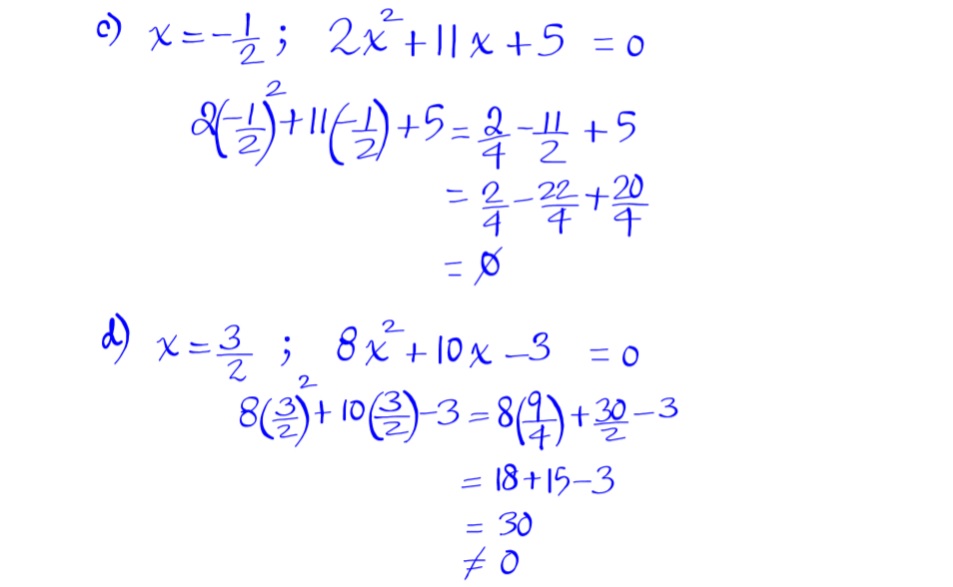 c) x = -1/2 ; 2x² + 11x + 5 = 0
2(-1/2)² + 11(-1/2) + 5 = 2/4 - 11/2 + 5
= 2/4 - 22/4 + 20/4
= 0̸
d) x = 3/2 ; 8x² + 10x - 3 = 0
8(3/2)² + 10(3/2) - 3 = 8(9/4) + 30/2 - 3
= 18 + 15 - 3
= 30
≠ 0